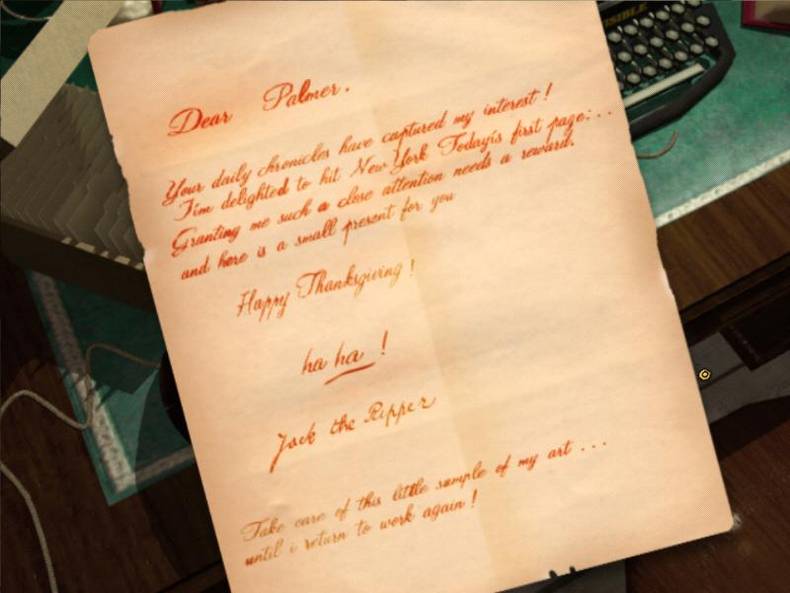 Dear Palmer.
Your daily chronicles have captured my interest !
I'm delighted to hit New York Today's first page...
Granting me such a close attention needs a reward.
and here is a small present for you
Happy Thanksgiving !
ha ha !
Jack the Ripper
Take care of this little sample of my art ...
until i return to work again !